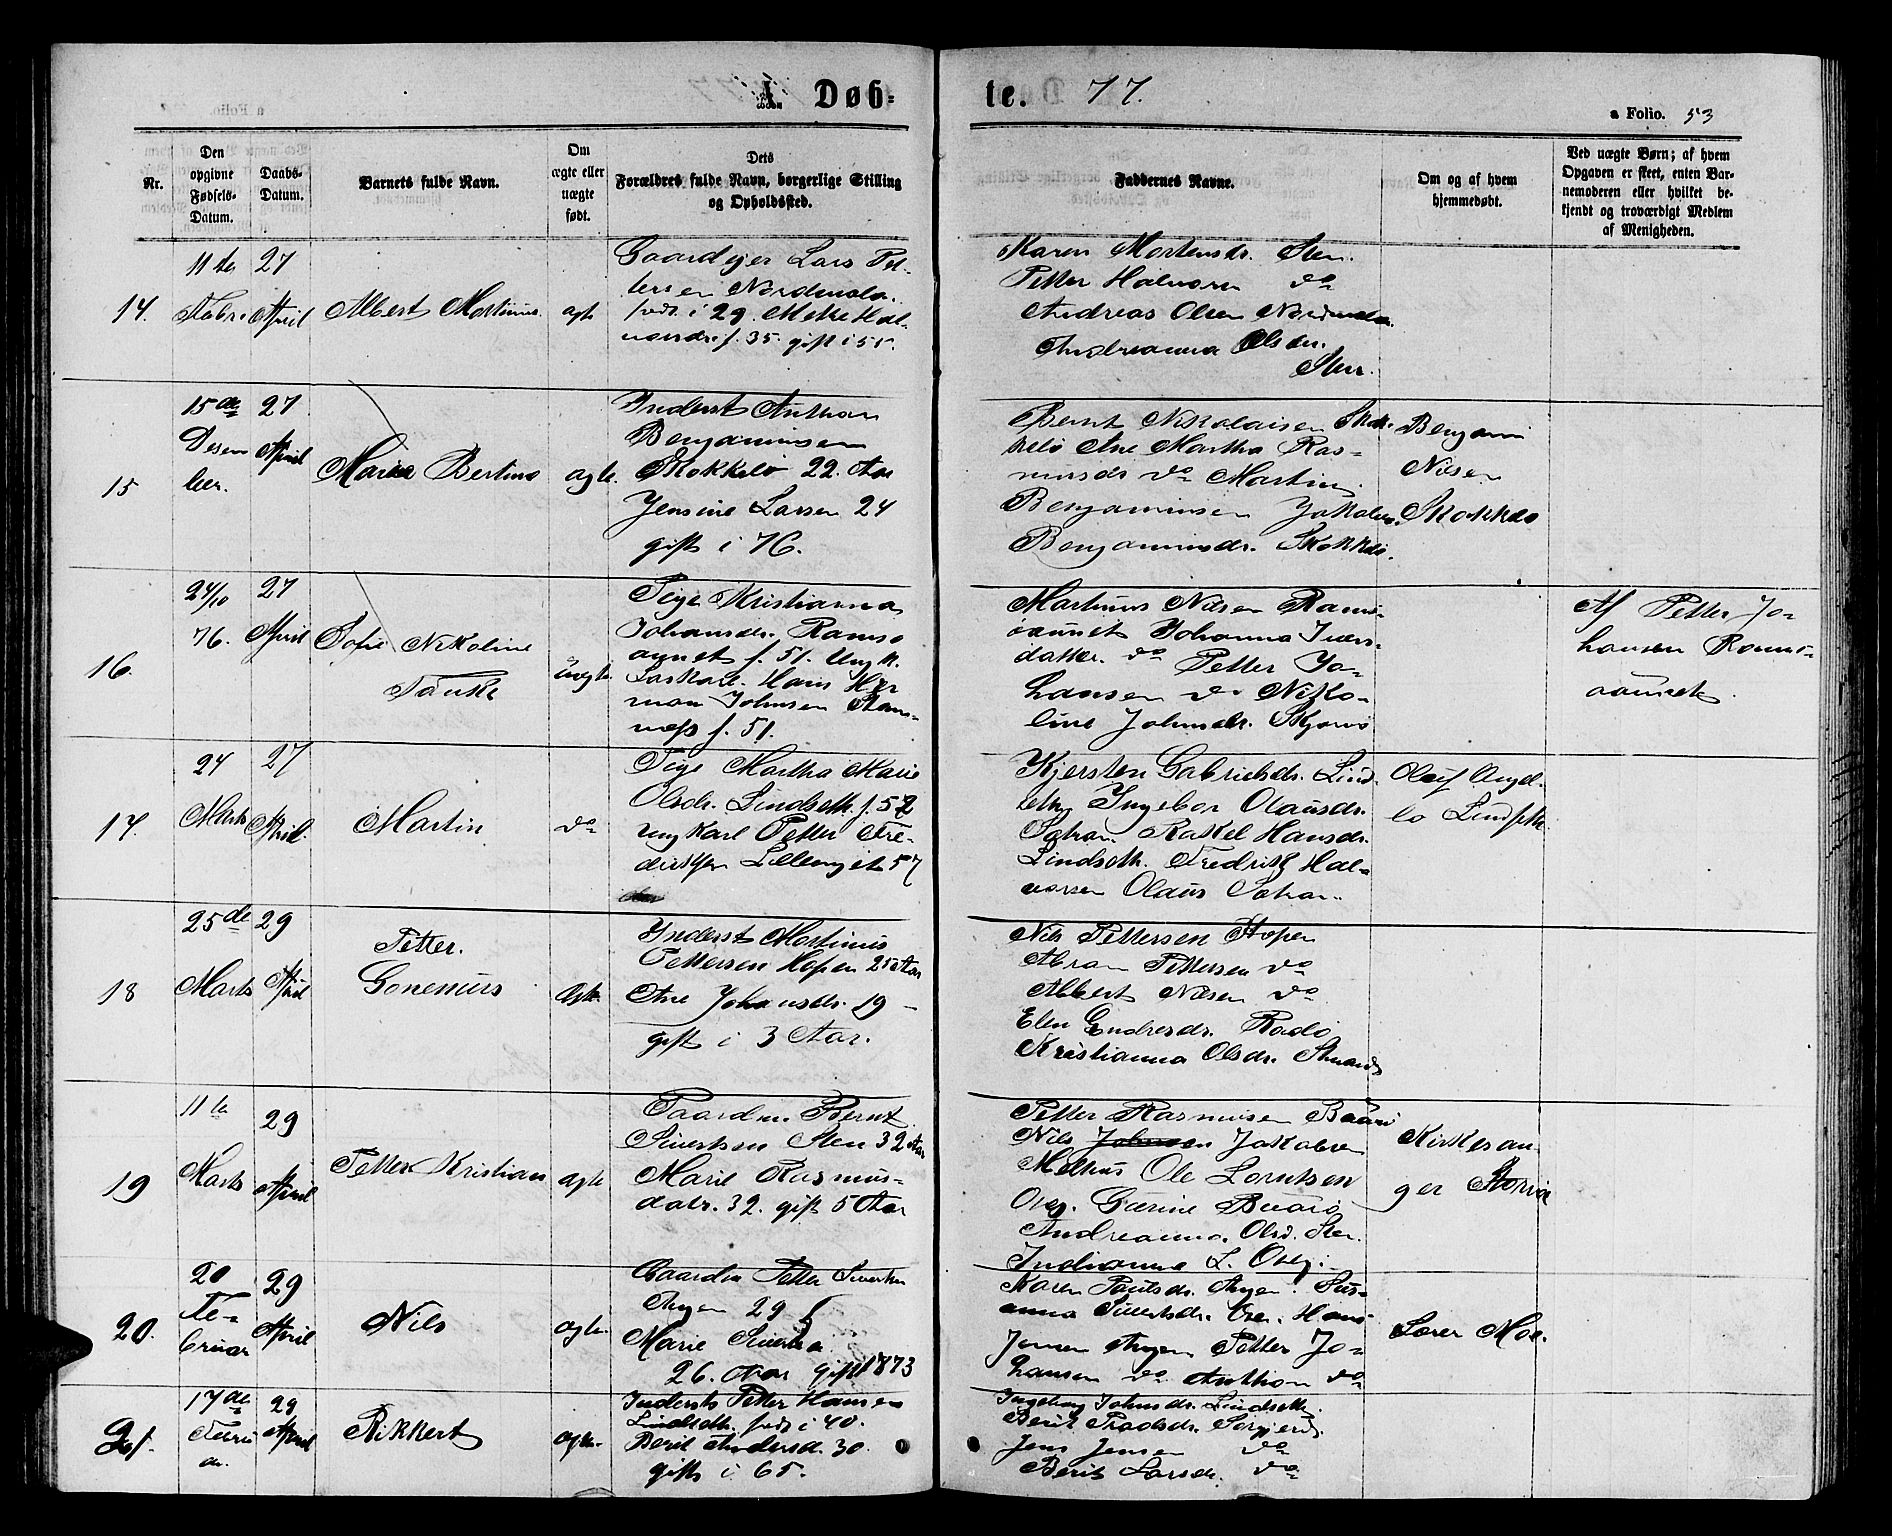 I. Døb-
te. 77.
a Folio. 53
Nr.
Den opgivne Fødsels-Datum.
Daabs-Datum.
Barnets fulde Navn.
Om ægte eller uægte født.
Dets Forældres fulde Navn, borgerlige Stilling og Opholdssted.
Faddernes Navne.
Om og af hvem hjemmedøbt.
Ved uægte Børn; af hvem Opgaven er skeet, enten Barnemoderen eller hvilket bekjendt og troværdigt Medlem af Menigheden.
14.
11te Febr.
27 April
Albert Martinus.
ægte
Gaardejer Lars Pet-
tersen Nordmela.
født i 29. Mette Hal-
vorsdr. f. 35. gift i 55.
Karen Mortensdr. Sten.
Petter Halvorsen do
Andreas Olsen Nordmela.
Andreanna Olsdr.
Sten.
15
15de Desem
ber.
27 April
Maria Bertine
ægte.
Inderst Anthon
Benjaminsen
Skokkelø 22. Aar
Jensine Larsen 24
gift i 76.
Bernt Nikolaisen Skok-
kelø Ane Martha Ras-
musdr do Martin
Benjaminsen Jakobine
Benjaminsdr. Skokkelø.
Benjami
Nilsen
Skokkelø
16.
24/10
76.
27 April
Sofie Nikoline
Tanske
Uægte.
Pige Kristianna
Johansdr. Ramsø
f. 51. Ungk.
Hans Her
man Johnsen
f. 51.
Martinus Nilsen
Johanna Ivers-
datter. do Petter Jo-
hansen do Niko-
line Johnsdr.
Af Petter Jo-
hansen
17.
24
Marts
27 April.
Martin
do
Pige Martha Marie
Olsdr. Lindseth f. 52
Ungkarl Petter Fre-
driksen 57
Kjersten Gabrielsdr. Lind-
seth Ingebor Olausdr.
Rakel Hansdr.
Lindseth. Fredrik Hal-
vorsen Olaus
Oluf
Lindseth.
18
25de
Marts
29
April
Petter.
Gonemus
Ægte.
Inderst Martinus
Pettersen Hopen 25 Aar
Ane Johansdr. 19 -
gift i 3 Aar.
Nils Pettersen Hopen
Abram Pettersen do
Albert Nilsen do
Elen Endresdr. Rodø
Kristianna Olsdr. Strand
19
11te
Marts
29
April
Petter Kristian
ægte
Gaardm. Bernt
Sivertsen Sten 32 Aar
Marie Rasmus-
datr. 32. gift 5 Aar
Petter Rasmusen
Nils Johnsen Jakobsen
Melhus Ole Lorntsen
Andreanna Olsd. Sten.
L.
Kirkesan
ger
20.
20
Fe-
bruar
29
April
Nils
ægte.
Gaardm Petter Sivertsen
29
Marie
26. Aar gift 1873
Karen Paulsdr. Sus-
anna Sivertsdr. Hans
Jensen Petter Jo-
hansen do Anthon do
Moe.
21.
17de
29
April
Rikkert
ægte.
Inderst Petter Hansen
Lindseth. født i 40.
Berit Andersd. 30.
gift i 65.
Ingebor Johnsdr. Lindseth.
Berit
Jens Jensen do
Berit Larsdr. do